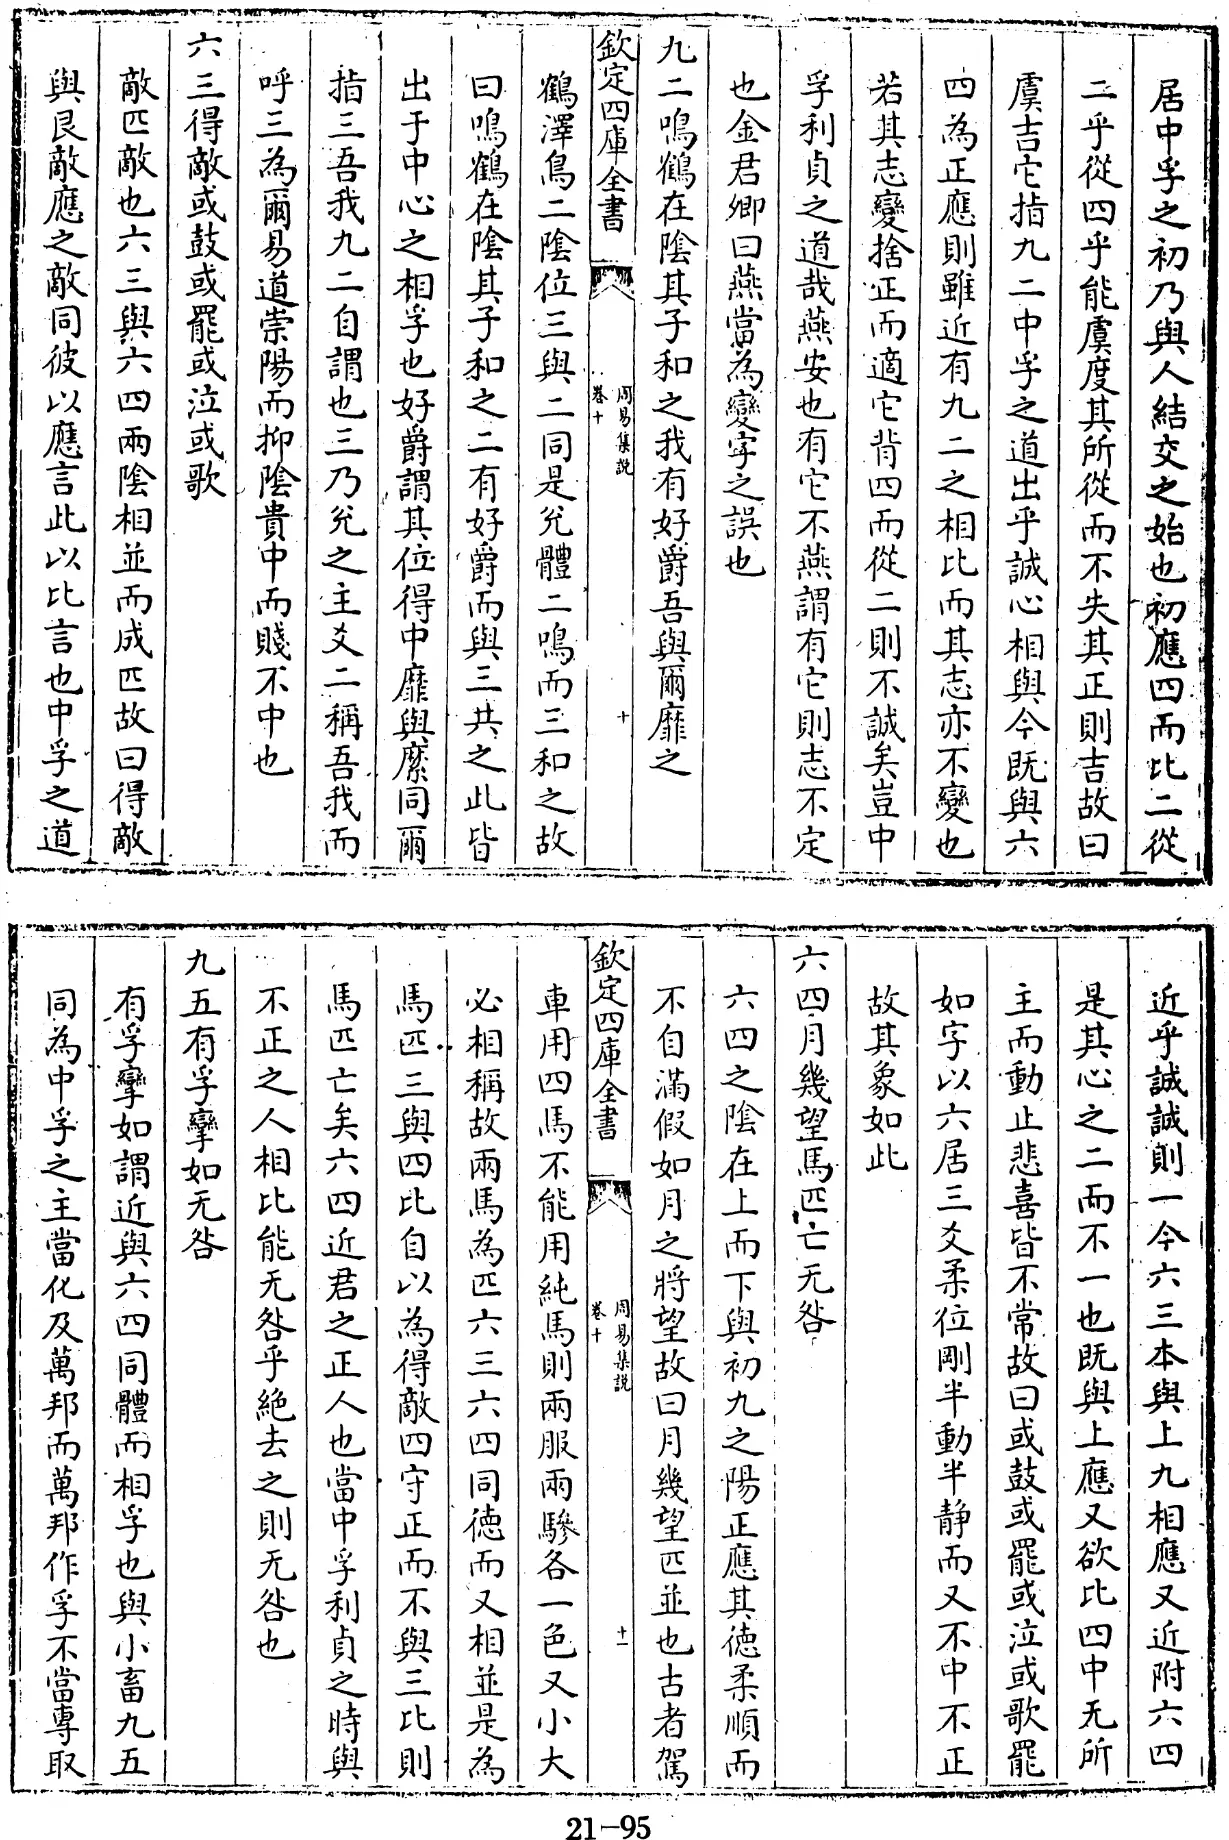 居中孚之初乃與人結交之始也初應四而比二從
二乎從四乎能虞度其所從而不失其正則吉故曰
虞吉它指九二中孚之道出乎誠心相與今既與六
四為正應則雖近有九二之相比而其志亦不變也
若其志變捨正而適它背四而從二則不誠矣豈中
孚利貞之道哉燕安也有它不燕謂有它則志不定
也金君卿曰燕當為變字之誤也
九二鳴鶴在陰其子和之我有好爵吾與爾靡之
欽定四庫全書
周易集説
卷十
十
鶴澤鳥二陰位三與二同是兊體二鳴而三和之故
曰鳴鶴在陰其子和之二有好爵而與三共之此皆
出于中心之相孚也好爵謂其位得中靡與縻同爾
指三吾我九二自謂也三乃兊之主爻二稱吾我而
呼三為爾易道崇陽而抑陰貴中而賤不中也
六三得敵或鼓或罷或泣或歌
敵匹敵也六三與六四兩陰相並而成匹故曰得敵
與艮敵應之敵同彼以應言此以比言也中孚之道
近乎誠誠則一今六三本與上九相應又近附六四
是其心之二而不一也既與上應又欲比四中无所
主而動止悲喜皆不常故曰或鼓或罷或泣或歌罷
如字以六居三爻柔位剛半動半静而又不中不正
故其象如此
六四月幾望馬匹亡无咎
六四之陰在上而下與初九之陽正應其徳柔順而
不自滿假如月之將望故曰月幾望匹並也古者駕
欽定四庫全書
周易集説
卷十
十一
車用四馬不能用純馬則兩服兩驂各一色又小大
必相稱故兩馬為匹六三六四同徳而又相並是為
馬匹三與四比自以為得敵四守正而不與三比則
馬匹亡矣六四近君之正人也當中孚利貞之時與
不正之人相比能无咎乎絶去之則无咎也
九五有孚攣如无咎
有孚攣如謂近與六四同體而相孚也與小畜九五
同為中孚之主當化及萬邦而萬邦作孚不當專取
21-95